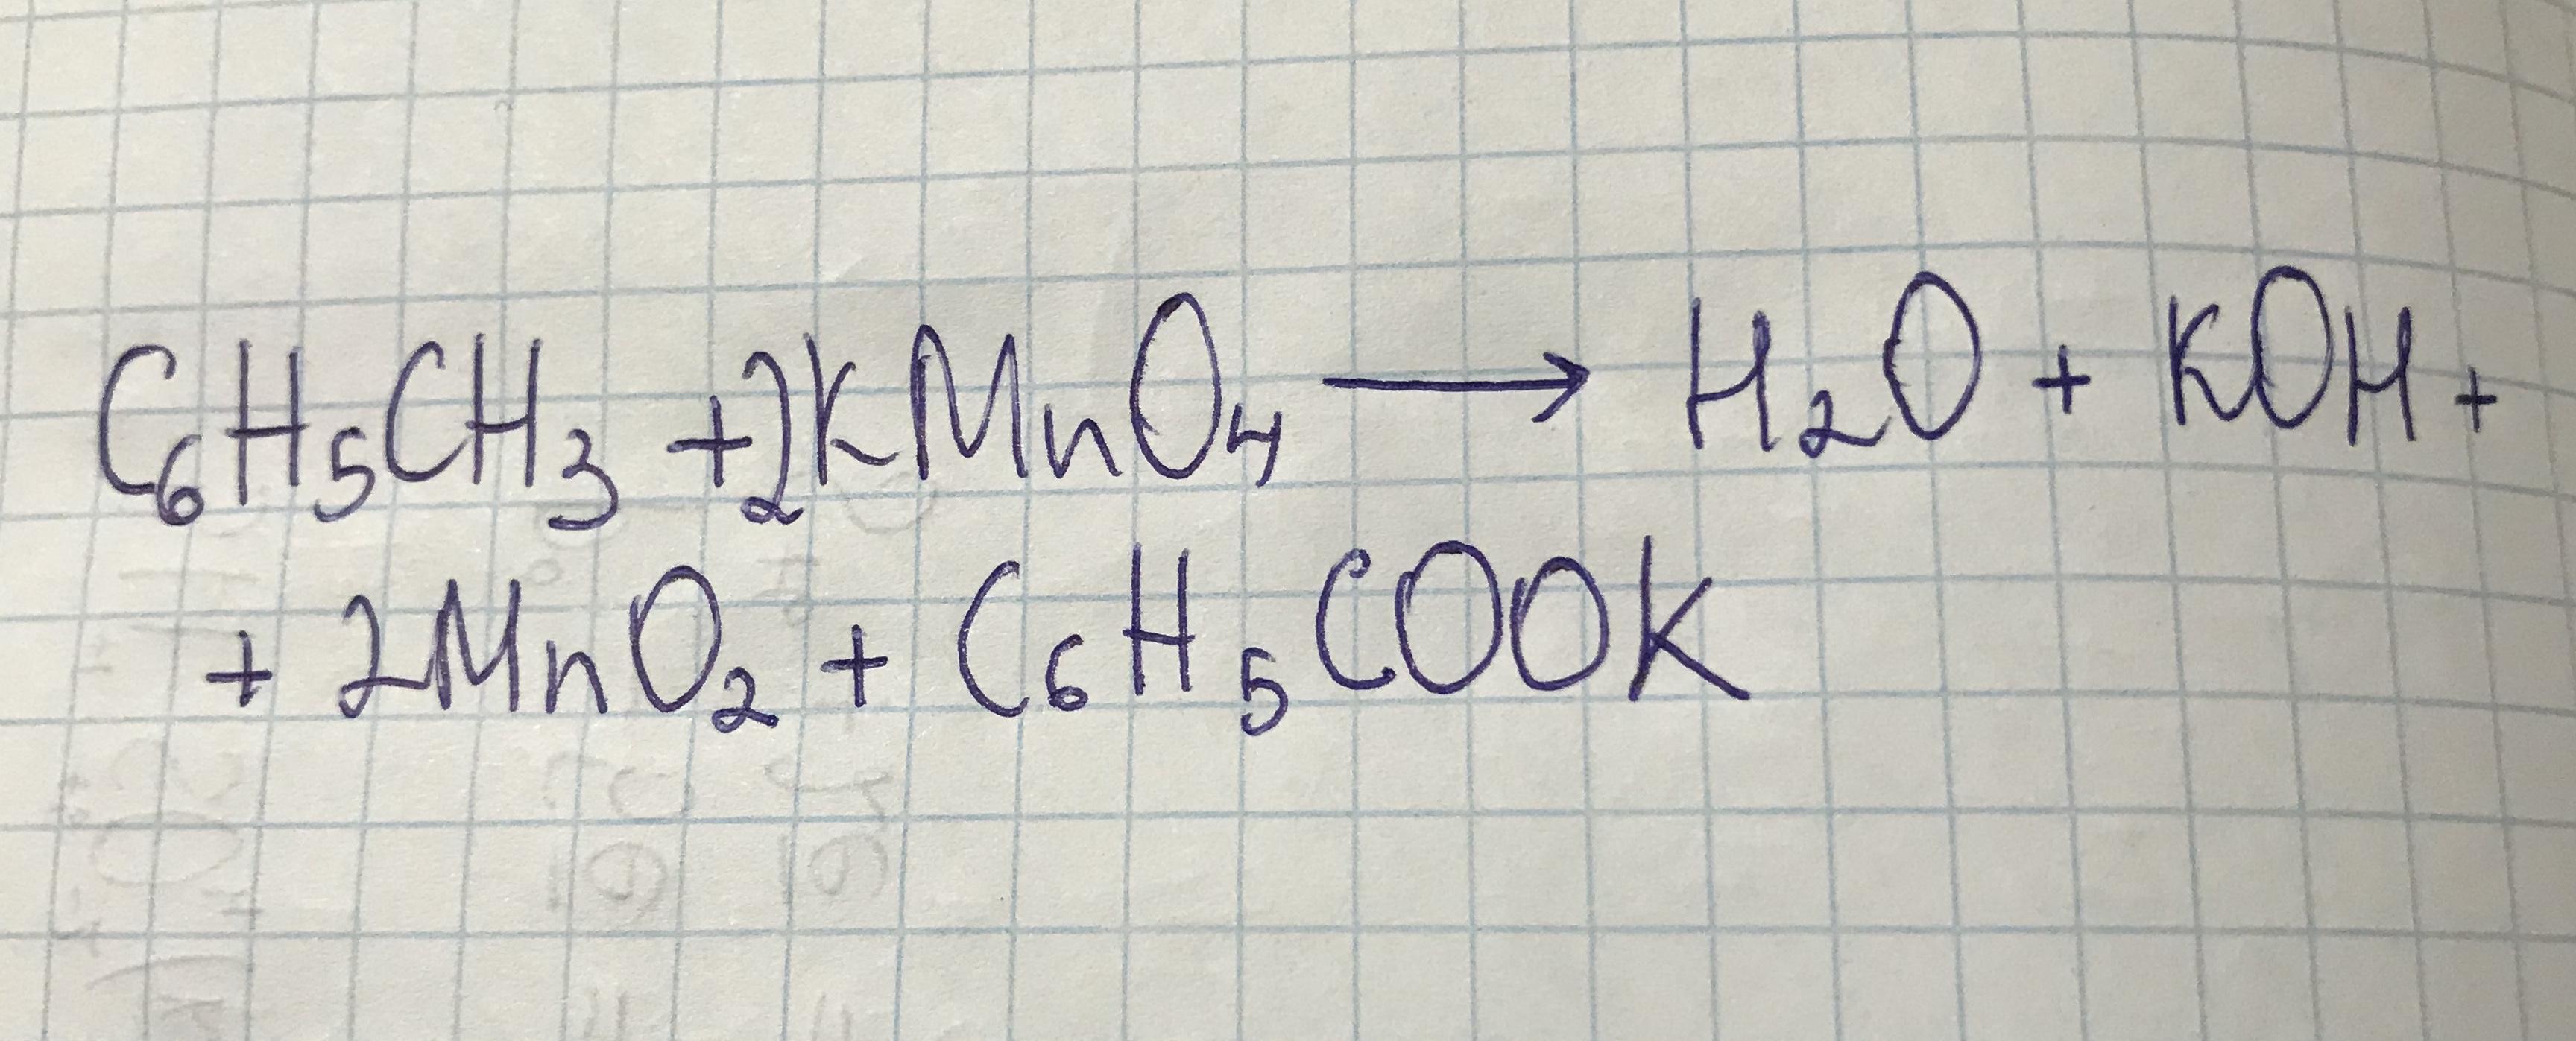 C₆H₅CH₃ + 2KMnO₄ → H₂O + KOH +
+ 2MnO₂ + C₆H₅COOK